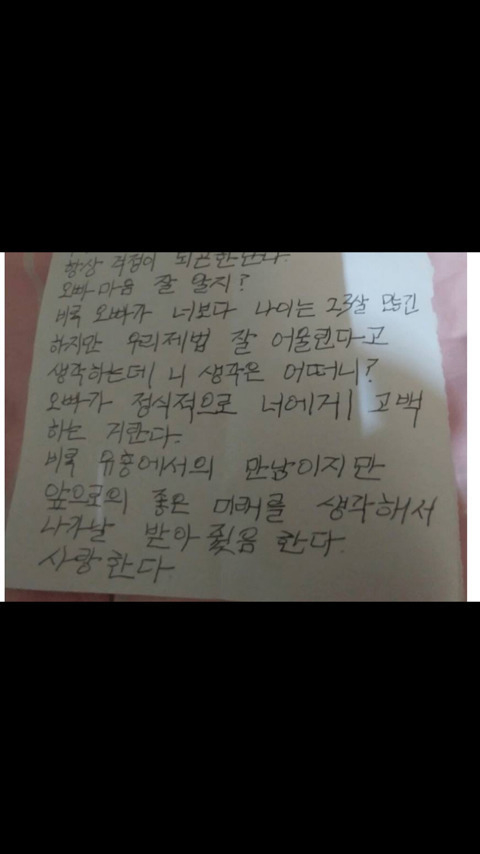 항상 걱정이 되곤한단다.
오빠 마음 잘 알지?
비록 오빠가 너보다 나이는 23살 많긴
하지만 우리제법 잘 어울린다고
생각하는데 니 생각은 어떠니?
오빠가 정식적으로 너에게 고백
하는 거란다.
비록 유흥에서의 만남이지만
앞으로의 좋은 미래를 생각해서
니가날 받아줒음 한다.
사랑한다